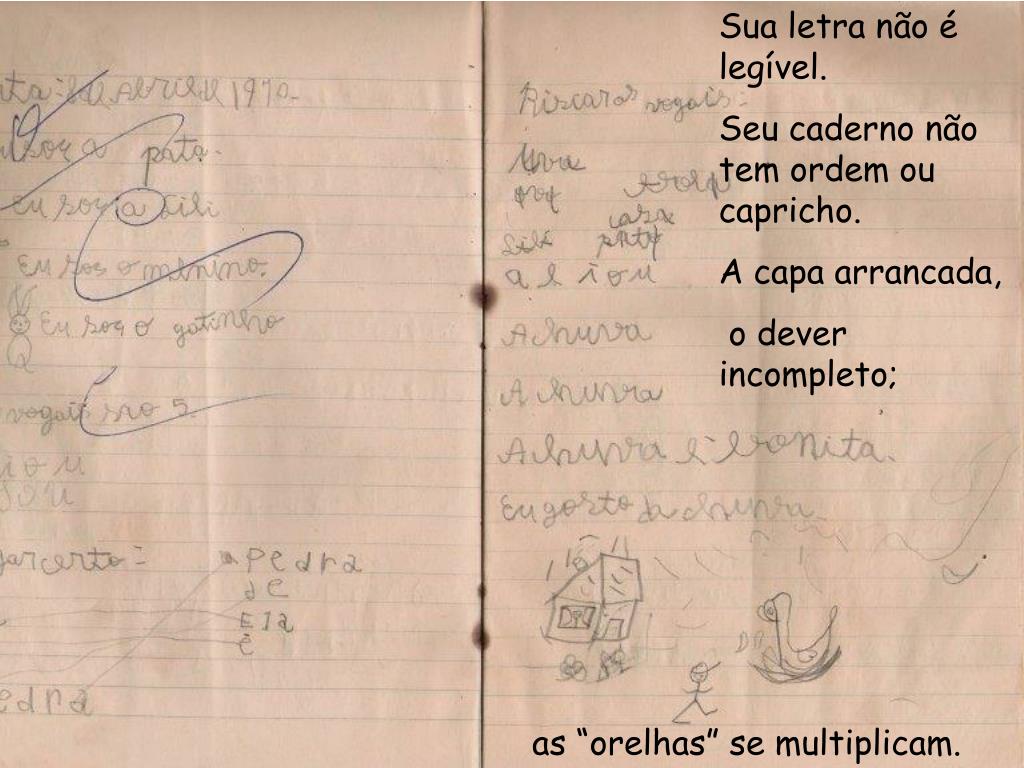 Abril 1970
pato.
Eu sou a Lili
Eu sou o menino.
Eu sou o gatinho
vogais são 5.
i o u
Pedra
de
Ela
é
edra
Riscar as vogais:
Uva
casa
Lili pato
a e i o u
A chuva
A chuva
A chuva é bonita.
Eu gosto da chuva
Sua letra não é
legível.
Seu caderno não
tem ordem ou
capricho.
A capa arrancada,
o dever
incompleto;
as “orelhas” se multiplicam.